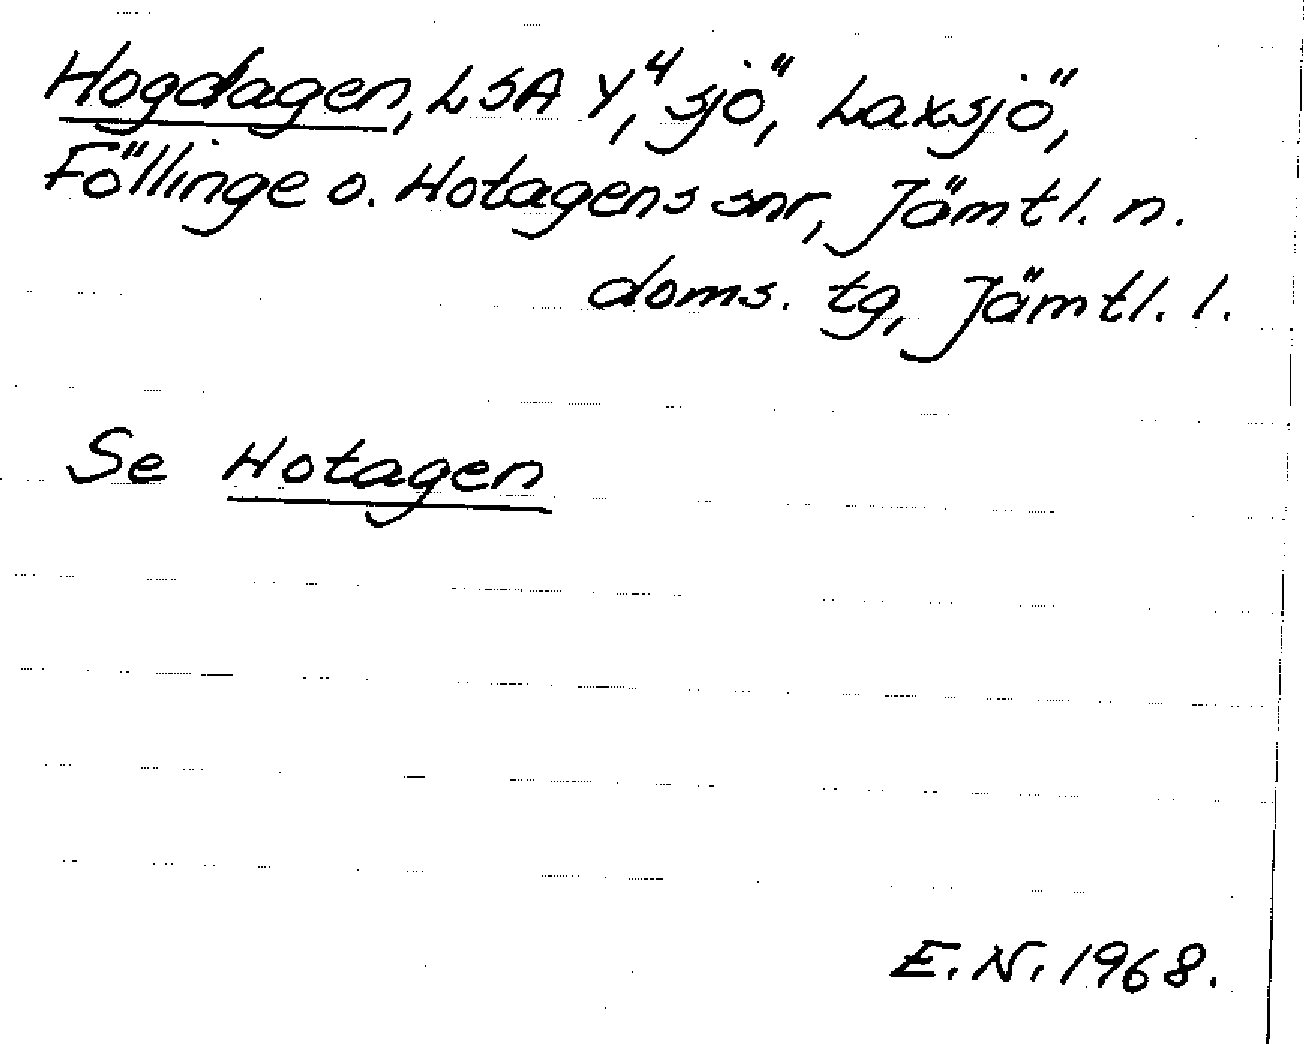 Hogdagen, LSA Y⁴, sjö, Laxsjö,
Föllinge o. Hotagens snr, Jämtl. n.
doms. tg, Jämtl. l.
Se Hotagen
E.N. 1968.